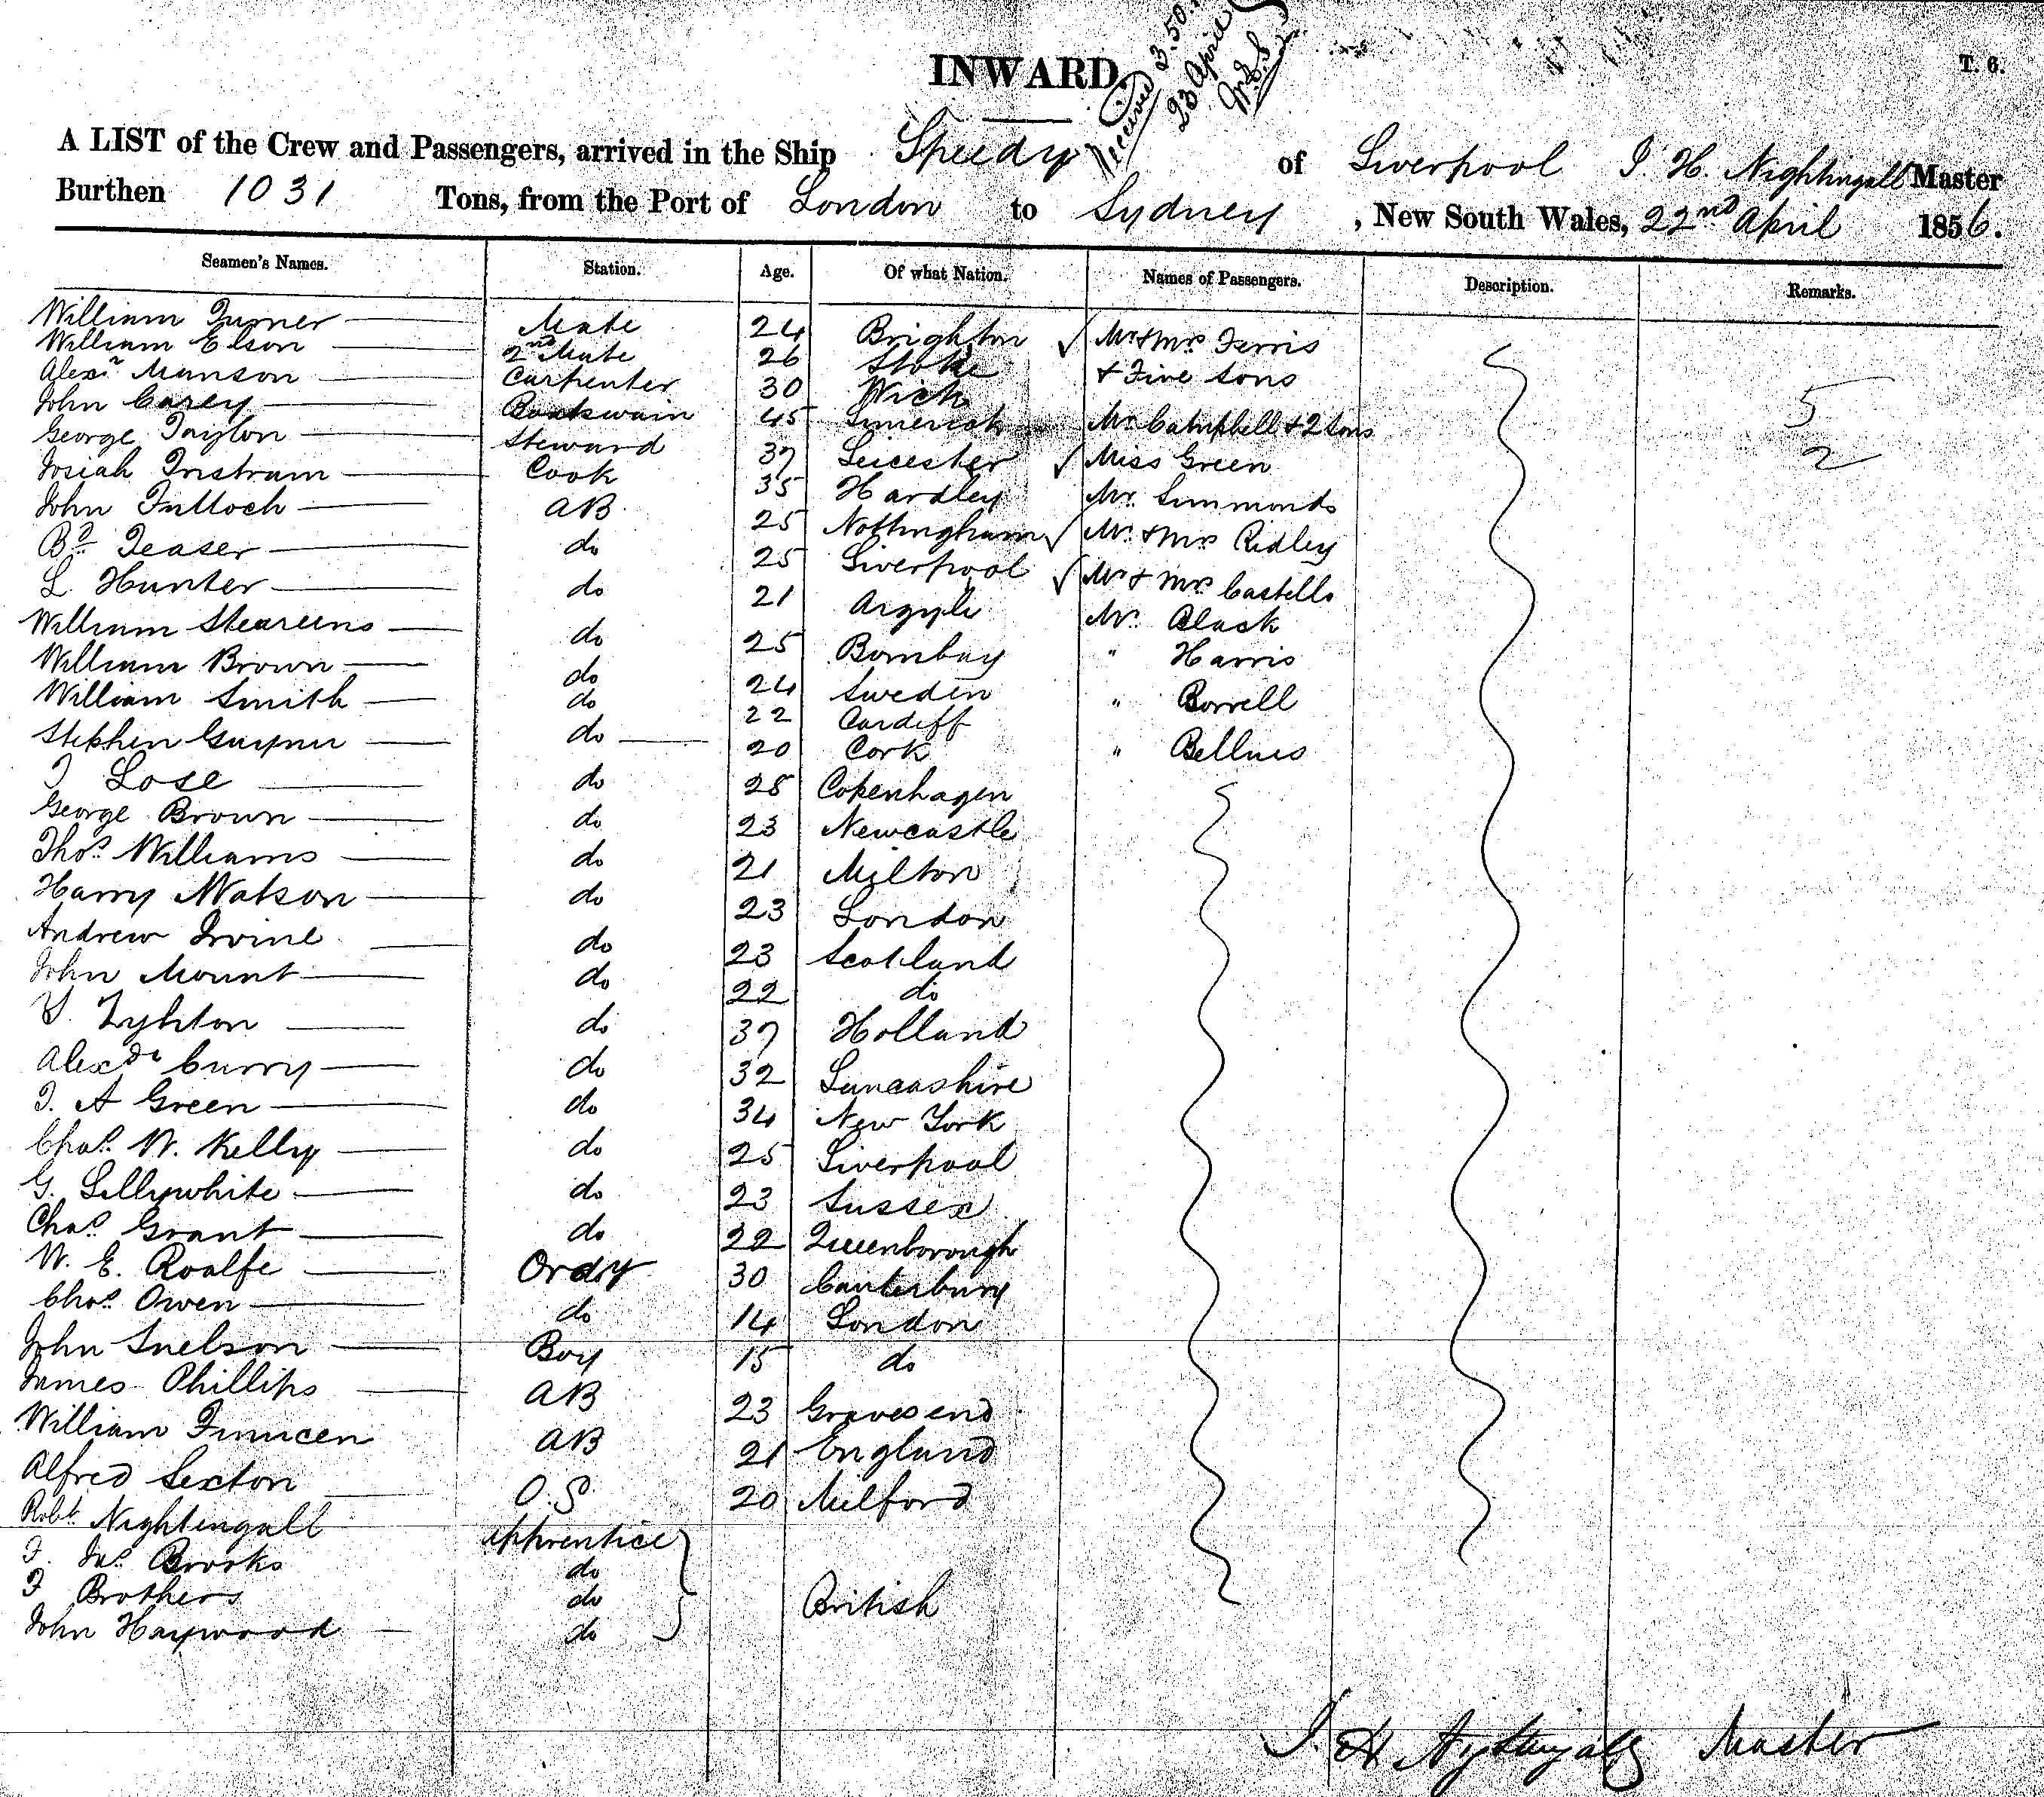 INWARD.
T. 6.
Received 3.50.
23 April
W.E.S.
A LIST of the Crew and Passengers, arrived in the Ship Speedy of Liverpool J. H. Nightingall Master
Burthen 1031 Tons, from the Port of London to Sydney, New South Wales, 22nd April 1856.
Seamen's Names. Station. Age. Of what Nation. Names of Passengers. Description. Remarks.
William Turner Mate 24 Brighton ✓ Mr & Mrs Ferris
William Elson 2nd Mate 26 Stoke & Five sons 5
Alexr Manson Carpenter 30 Wick
John Carey Boatswain 45 Limerick Mr Campbell & 2 Sons 2
George Taylor Steward 37 Leicester ✓ Miss Green
Josiah Tristram Cook 35 Hardley Mr Simmonds
John Tulloch AB 25 Nottingham ✓ Mr & Mrs Ridley
Bd Teaser do 25 Liverpool ✓ Mr & Mrs Castello
L. Hunter do 21 Argyle Mr Black
William Steareens do 25 Bombay " Harris
William Brown do 24 Sweden " Borrell
William Smith do 22 Cardiff
Stephen do 20 Cork "
Lose do 28 Copenhagen
George Brown do 23 Newcastle
Thos Williams do 21 Milton
Harry Watson do 23 London
Andrew Irvine do 23 Scotland
John Mount do 22 do
Tyhton do 37 Holland
Alexdr Curry do 32 Lancashire
J. A Green do 34 New York
Chas W. Kelly do 25 Liverpool
G. Lillywhite do 23 Sussex
Chas Grant do 22 Queenborough
W. E. Roalfe Ordy 30 Canterbury
Chas Owen do 14 London
John Snelson Boy 15 do
James Phillips AB 23 Gravesend
William Finucen AB 21 England
Alfred Sexton O.S. 20 Milford
Robt Nightingall Apprentice
Jas Brooks do
F Brothers do British
John Haywood do
J. H Nightingall Master